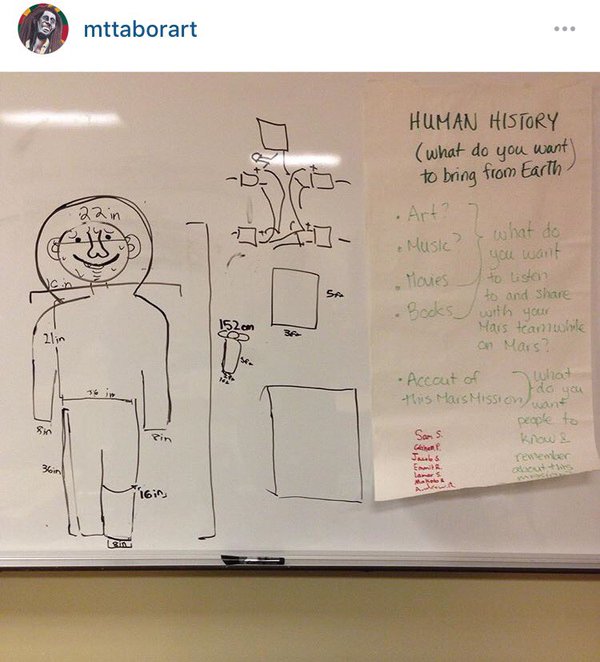 mttaborart
22in
21in
8in
8in
36in
16in
8in
152cm
5ft
3ft
HUMAN HISTORY
(what do you want)
to bring from Earth
• Art?
• Music?
• Movies
• Books
what do
you want
to listen
to and share
with your
Mars team while
on Mars?
• Accout of
this Mars Mission
what
do you
want
people to
know &
remember
about this
mission
Sam S.
Jacob S.
Lamar S.